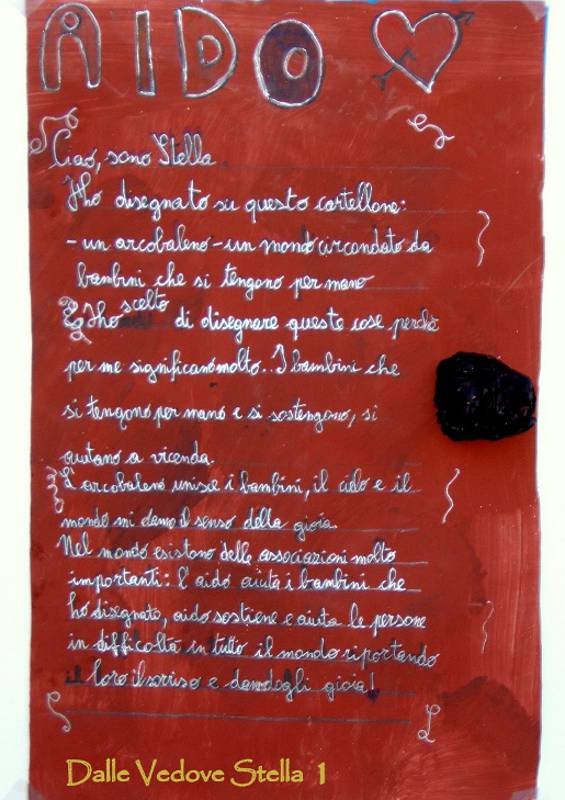 AIDO
Ciao, sono Stella
Ho disegnato su questo cartellone:
- un arcobaleno - un mondo circondato da
bambini che si tengono per mano
Ho scelto di disegnare queste cose perchè
per me significano molto.. I bambini che
si tengono per mano e si sostengono, si
aiutano a vicenda.
L'arcobaleno unisce i bambini, il cielo e il
mondo mi danno il senso della gioia.
Nel mondo esistono delle associazioni molto
importanti: l'aido aiuta i bambini che
ho disegnato, aido sostiene e aiuta le persone
in difficoltà in tutto il mondo riportando
il loro il sorriso e dandogli gioia!
L
Dalle Vedove Stella 1